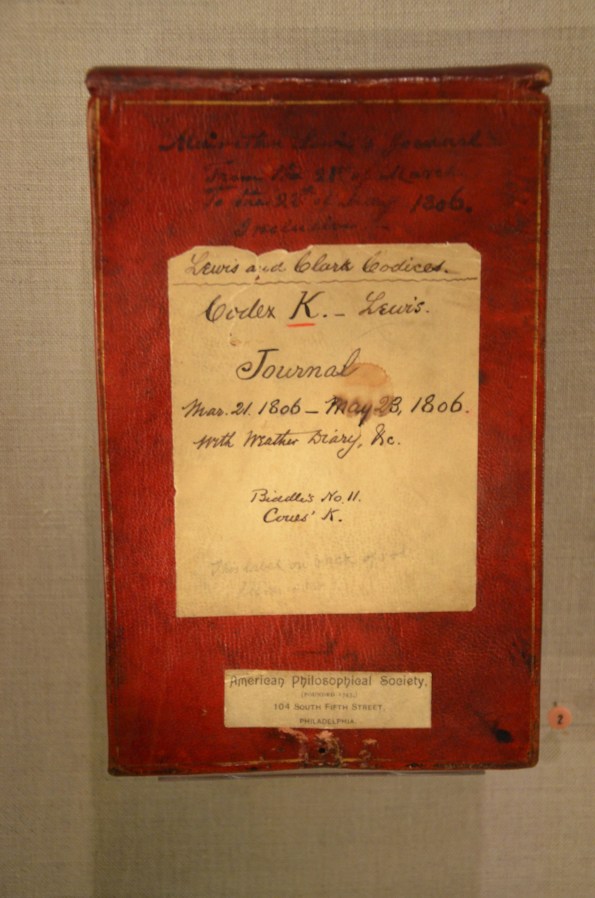 Meriwether Lewis's Journal
From the 21st of March
To the 22th of May 1806.
Inclusive
Lewis and Clark Codices.
Codex K. – Lewis.
Journal
Mar. 21. 1806 – May 23, 1806.
With Weather Diary, &c.
Biddle's No. 11.
Coues' K.
This label on back of vol
American Philosophical Society.
(FOUNDED 1743)
104 SOUTH FIFTH STREET,
PHILADELPHIA.
2